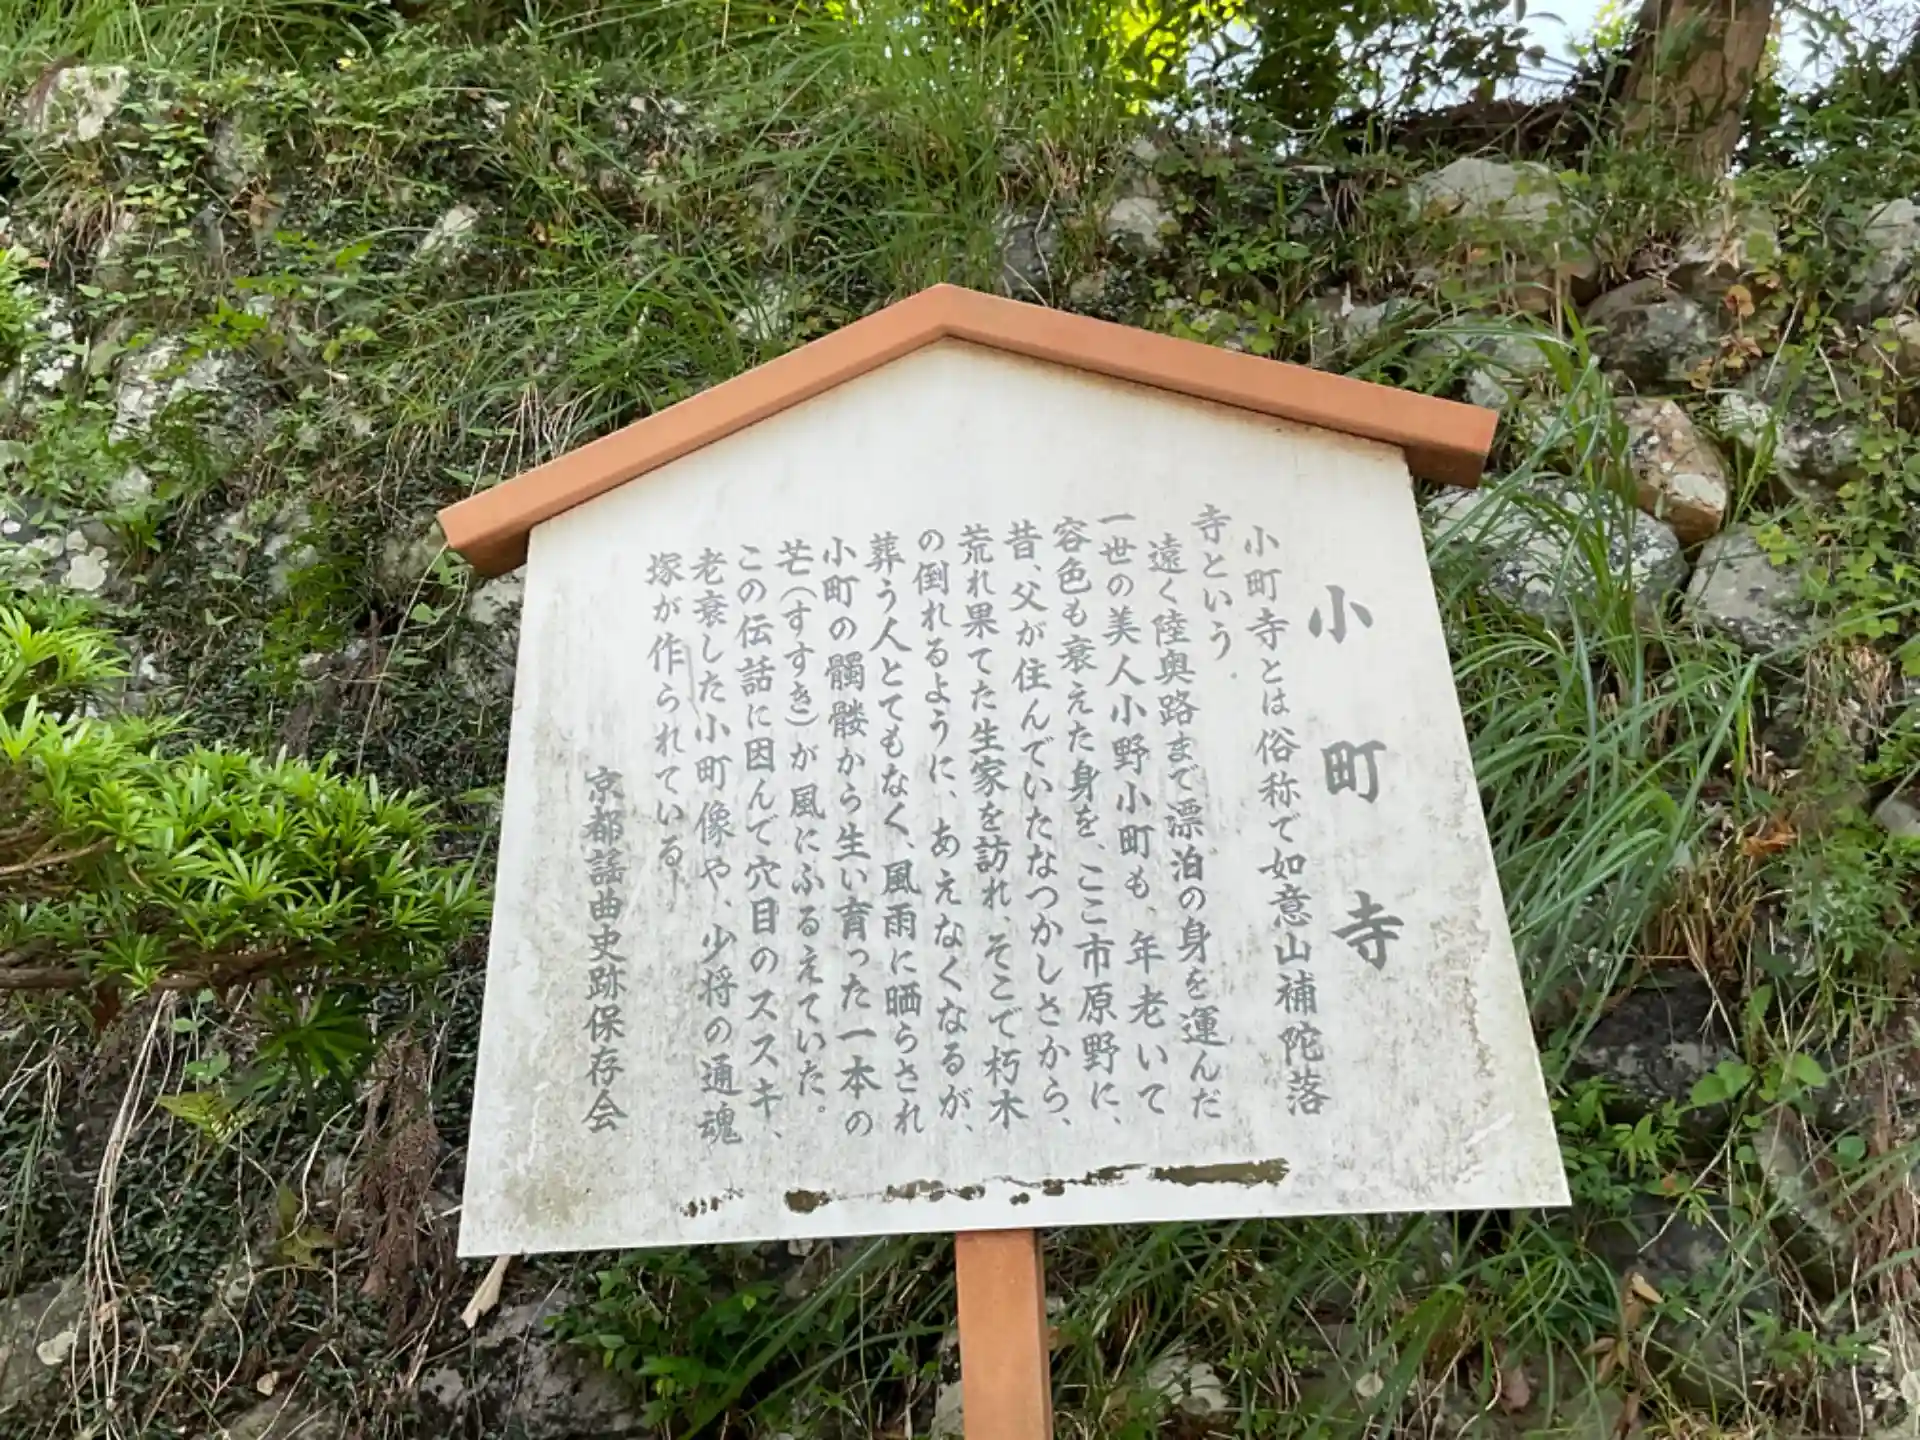 小町寺
小町寺とは俗称で如意山補陀落
寺という。
遠く陸奥路まで漂泊の身を運んだ
一世の美人小野小町も、年老いて
容色も衰えた身を、ここ市原野に、
昔、父が住んでいたなつかしさから、
荒れ果てた生家を訪れ、そこで朽木
の倒れるように、あえなくなるが、
葬う人とてもなく、風雨に晒らされ
小町の髑髏から生い育った一本の
芒(すすき)が風にふるえていた。
この伝話に因んで穴目のススキ、
老衰した小町像や、少将の通魂
塚が作られている。
京都謡曲史跡保存会